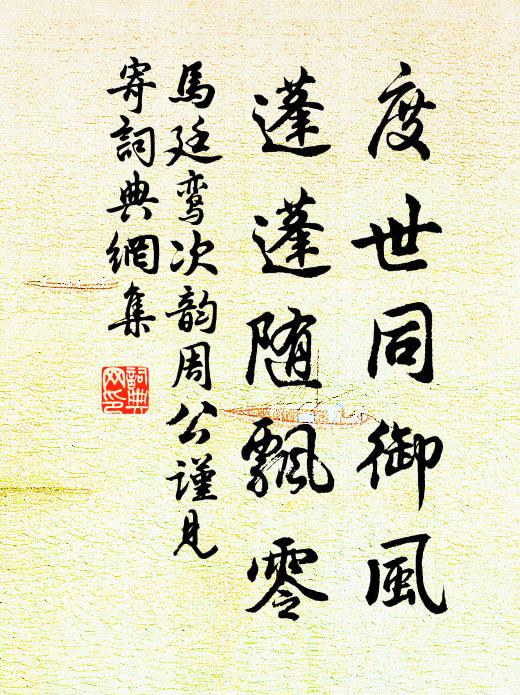 度世同御風
蓬蓬随飄零
馬廷鸾次韵周公谨見
寄詞典網集
詞典网印